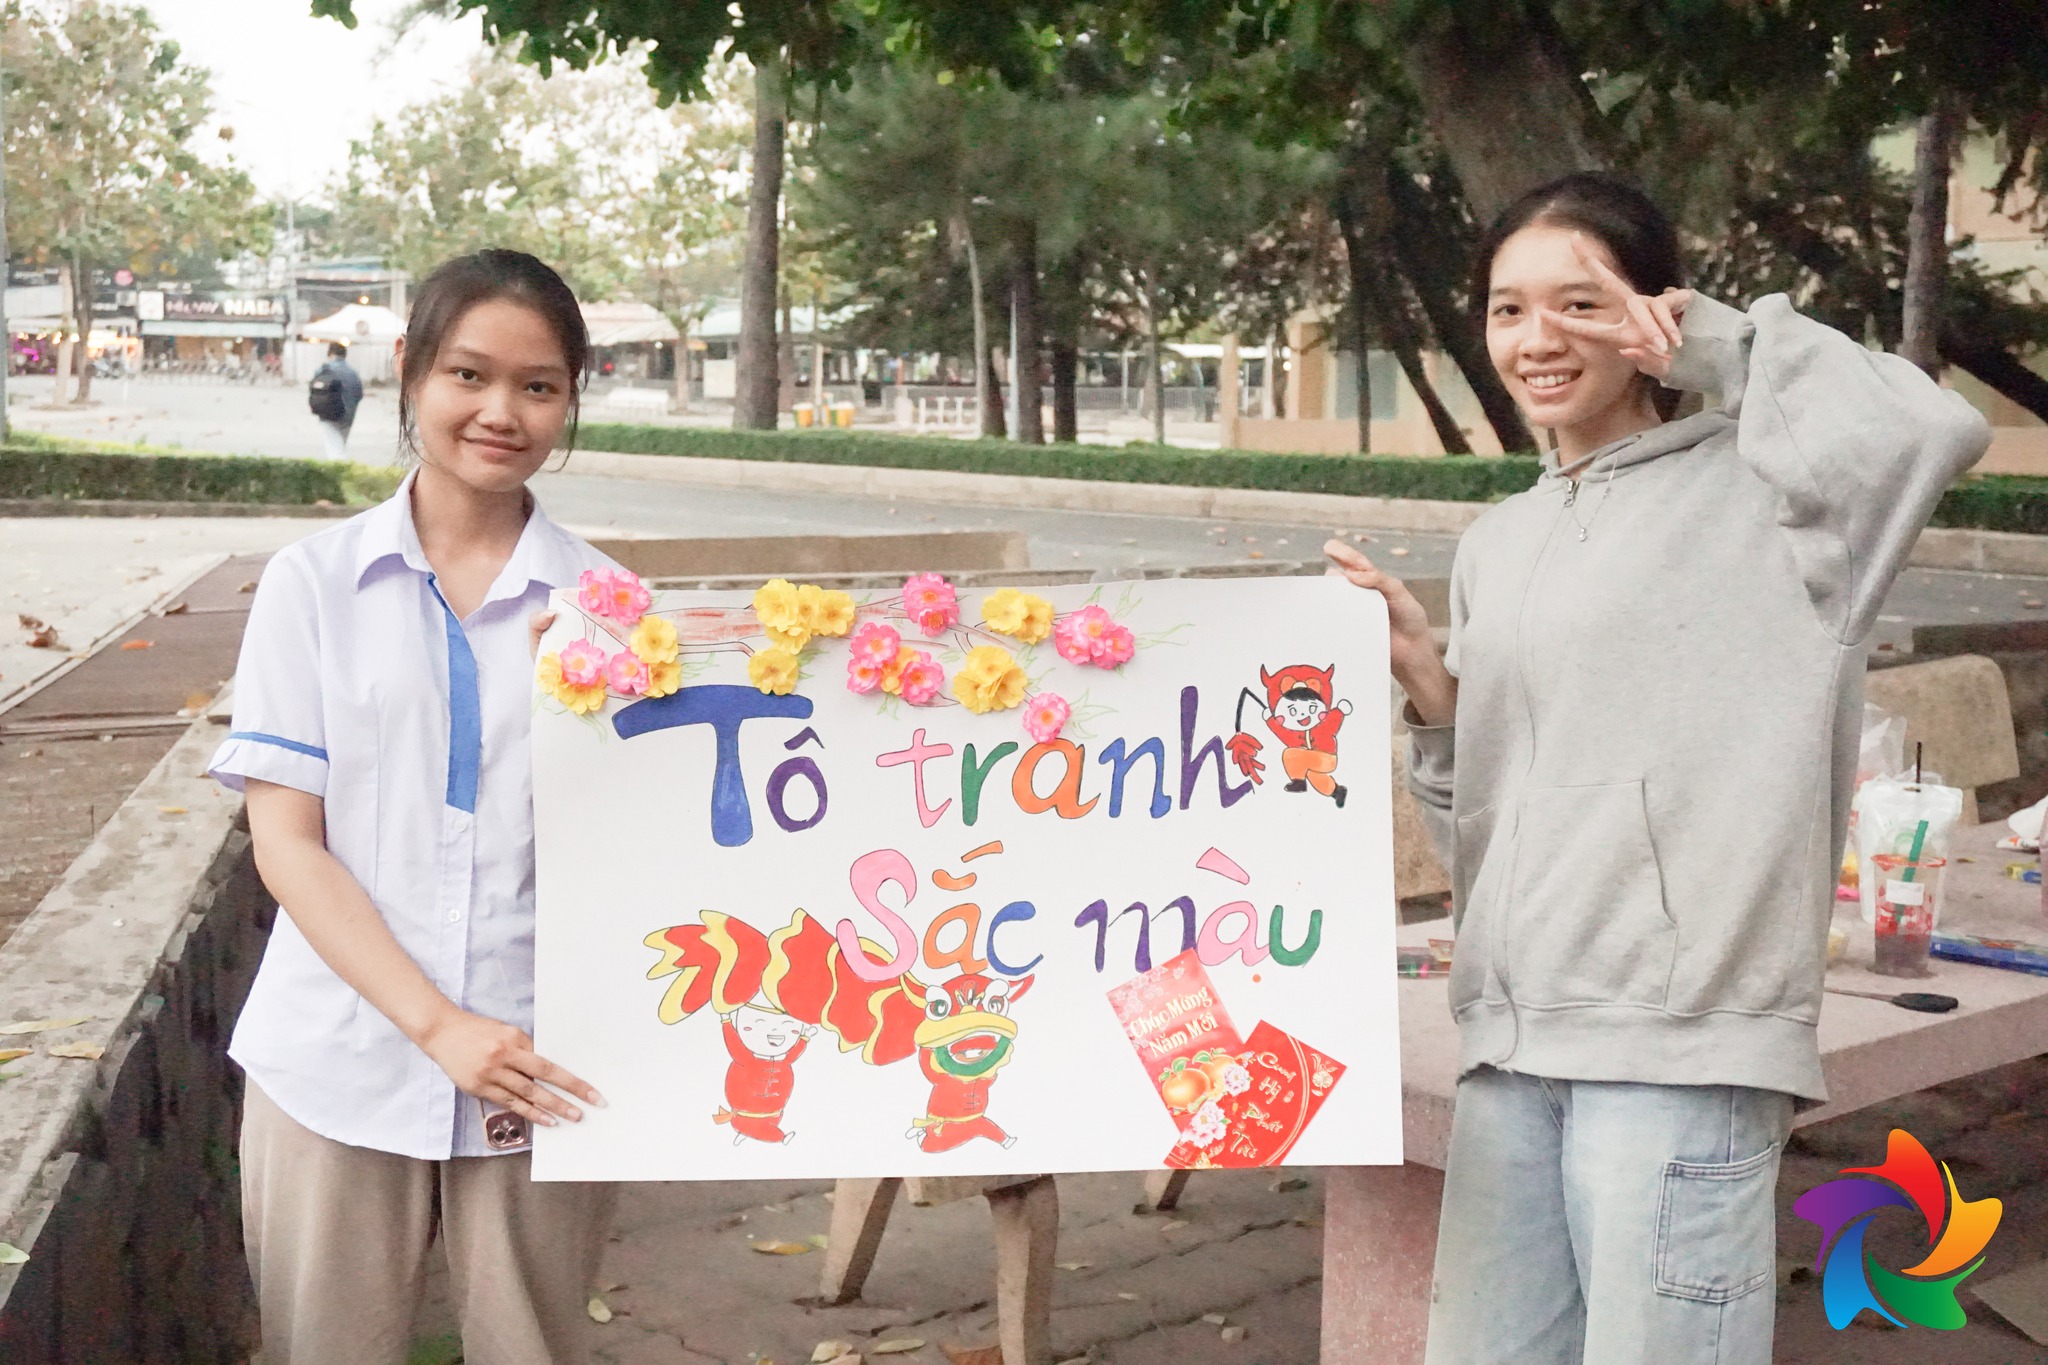 NABA
Tô tranh
Sắc màu
Chúc Mừng
Năm Mới
Cung
Hỷ
Phát
Tài